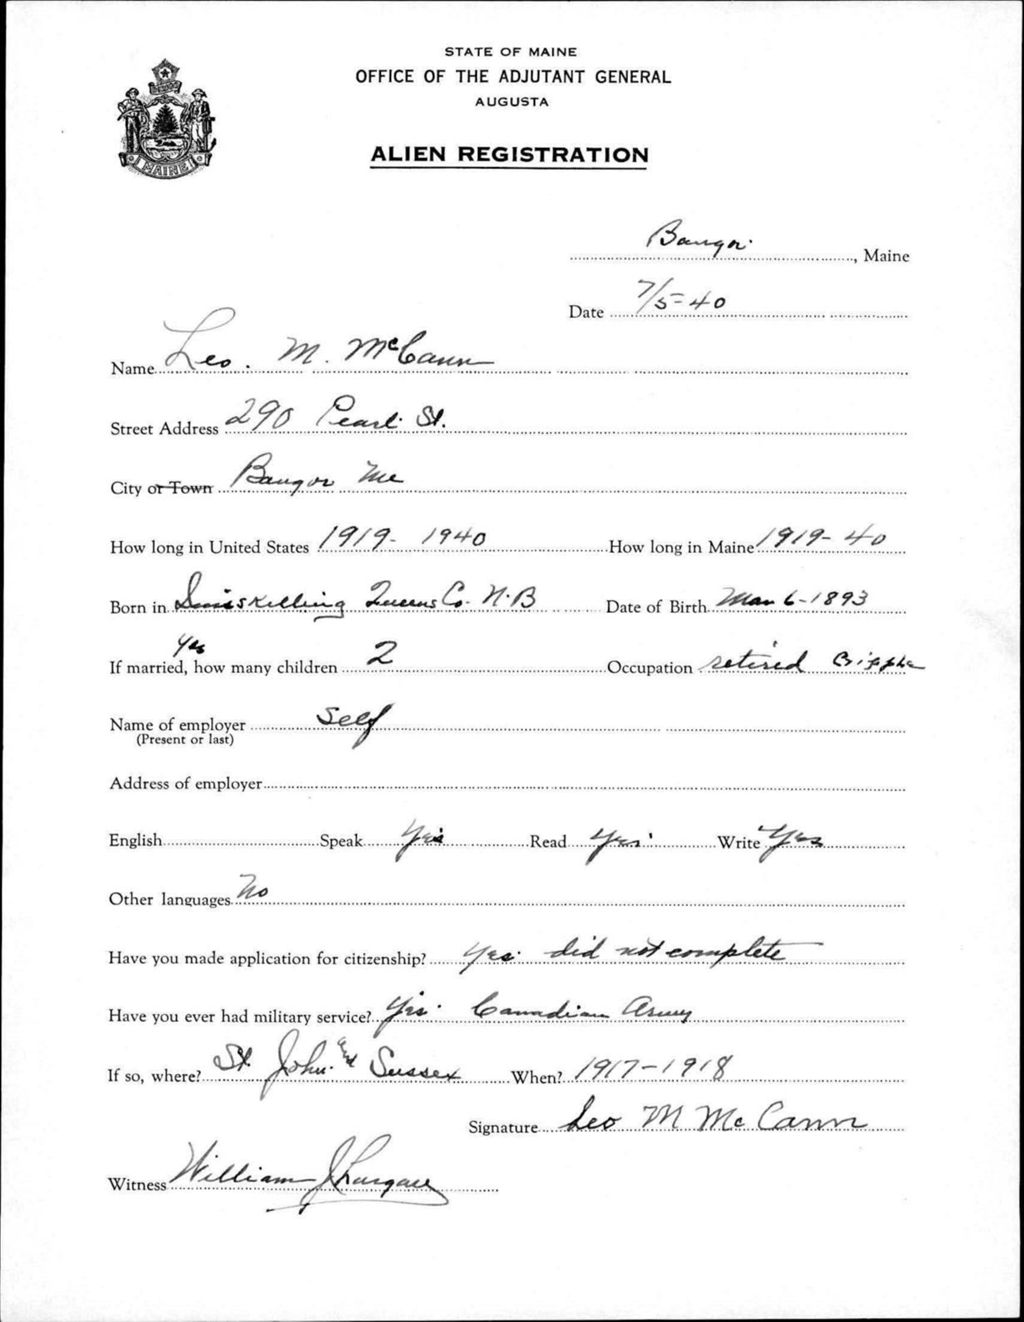 STATE OF MAINE
OFFICE OF THE ADJUTANT GENERAL
AUGUSTA
ALIEN REGISTRATION
MAINE
Bangor, Maine
Date 7/5-40
Name Leo. M. McCann
Street Address 290 Pearl St.
City or Town Bangor Me
How long in United States 1919-1940 How long in Maine 1919-40
Born in Inniskilling Queens Co. N.B Date of Birth Mar 6-1893
Yes
If married, how many children 2 Occupation retired
Name of employer Self
(Present or last)
Address of employer
English Speak Yes Read Yes Write Yes
Other languages No
Have you made application for citizenship? Yes. did not complete
Have you ever had military service? Yes. Canadian Army
If so, where? St. John. and Sussex When? 1917-1918
Signature Leo M Mc Cann
Witness William J